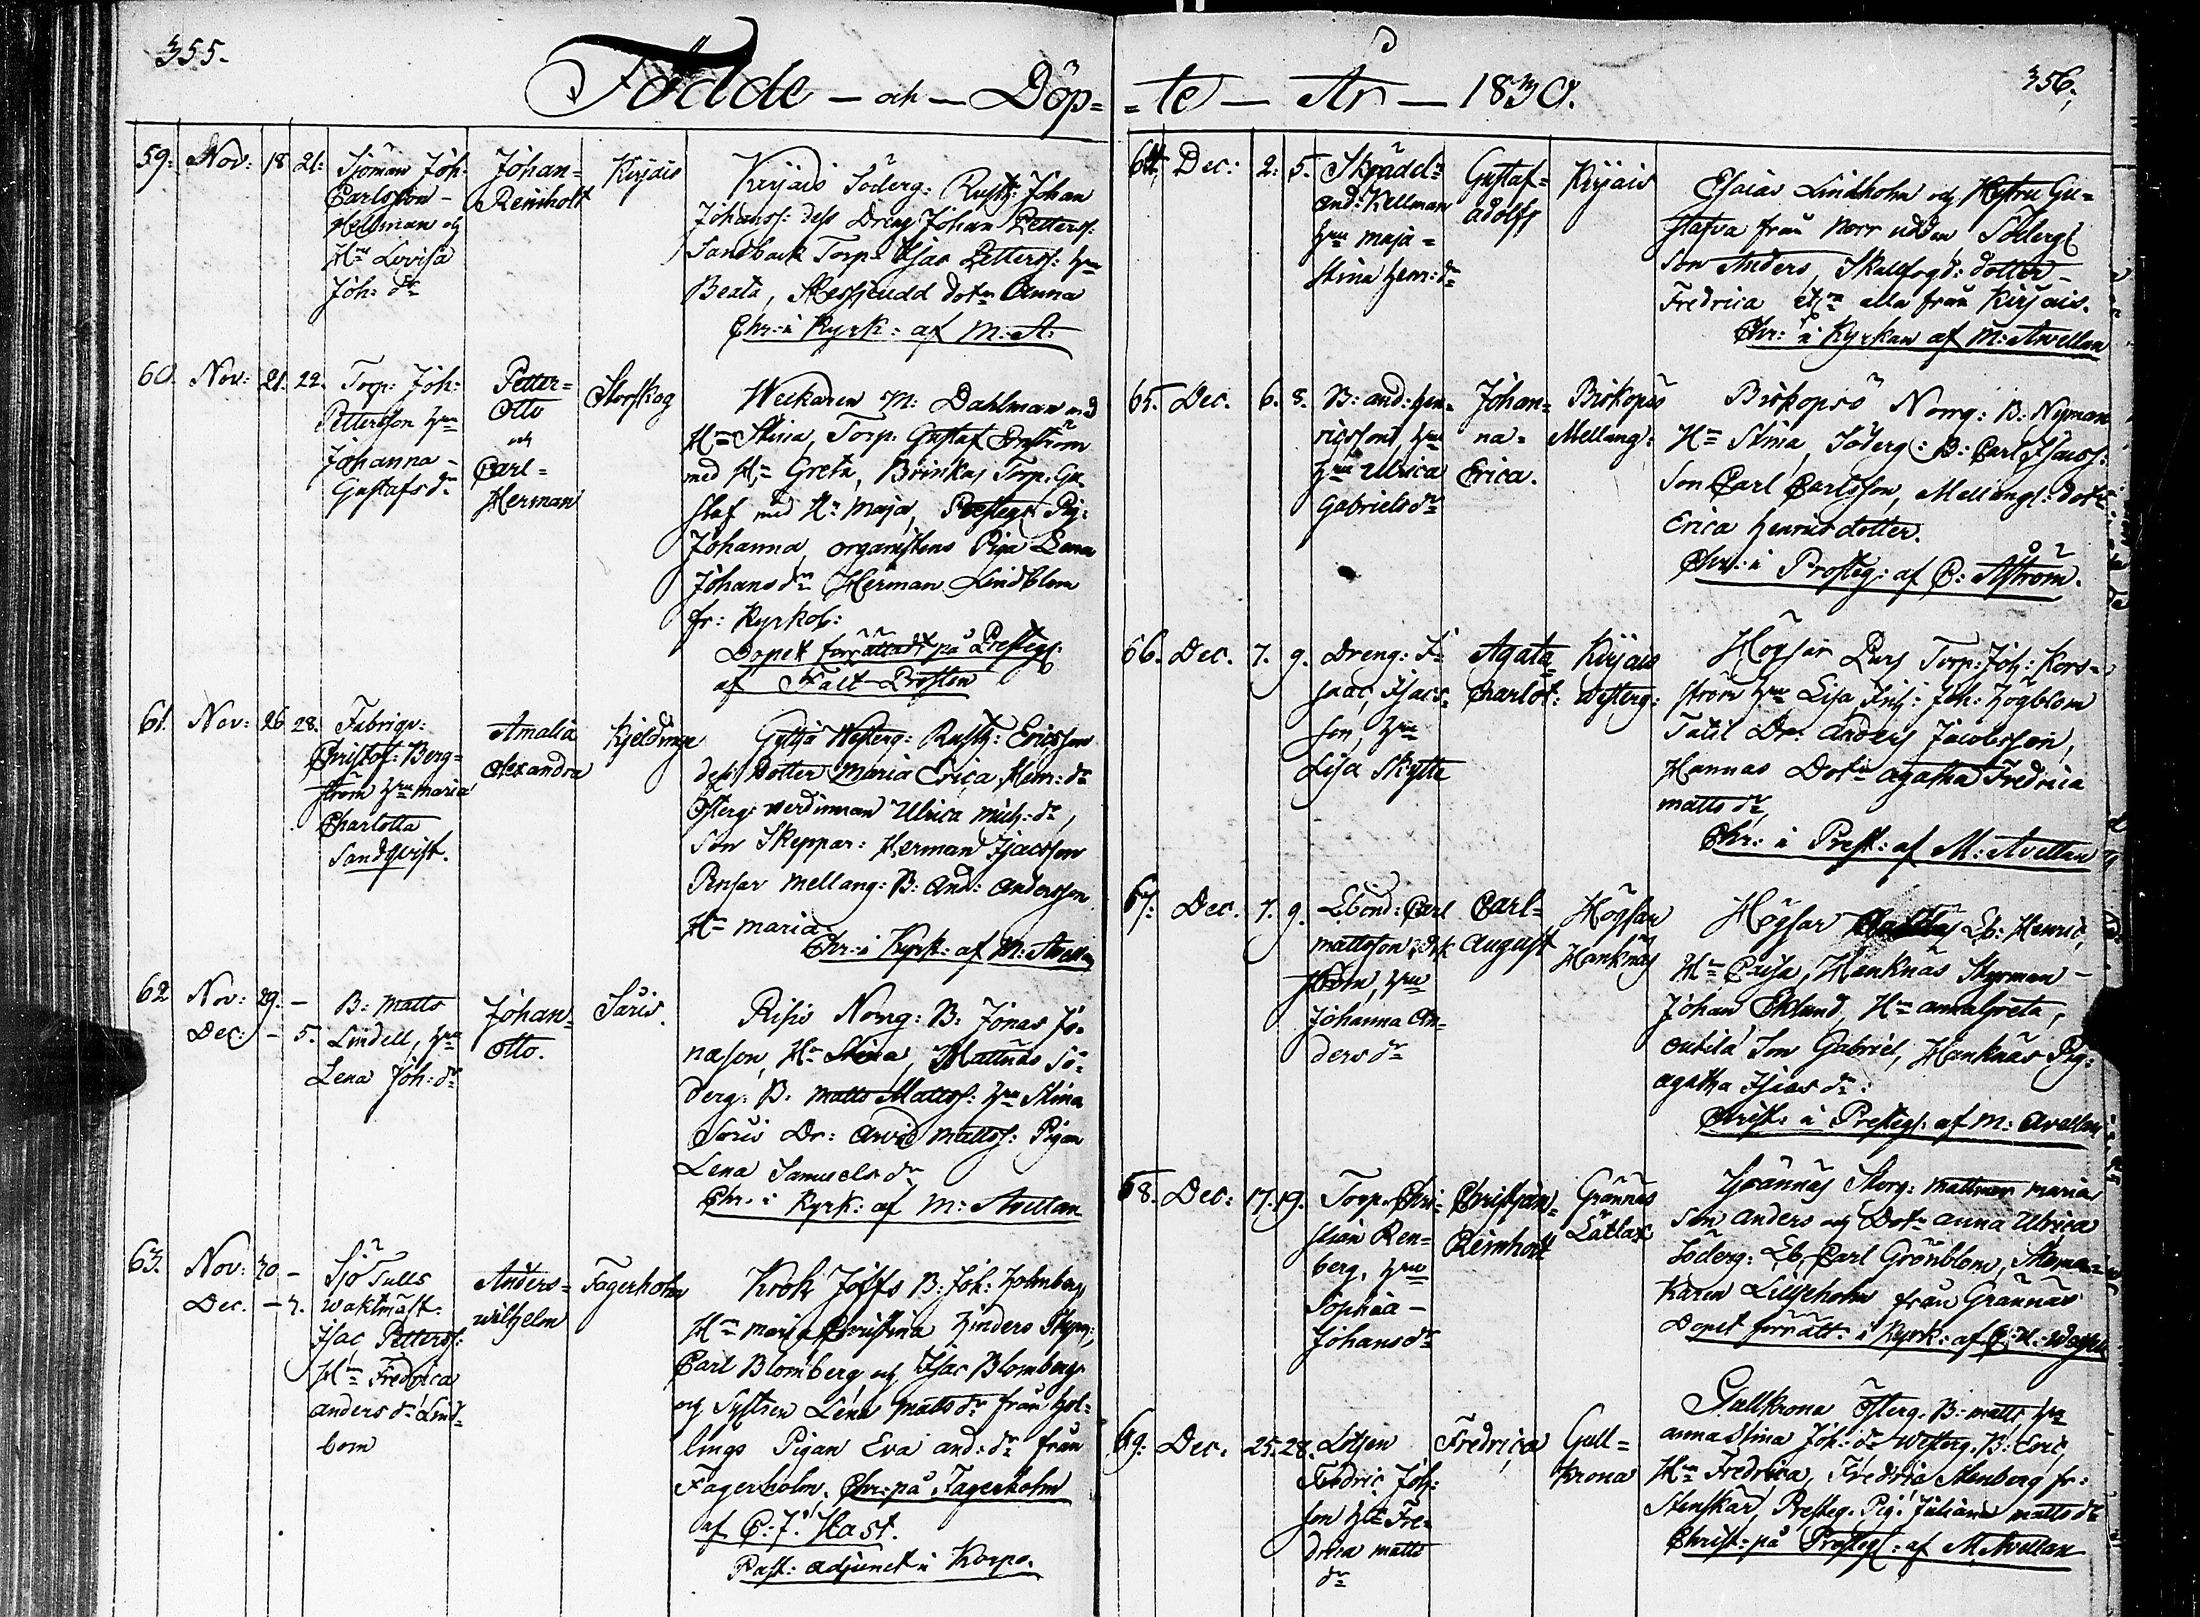 355.
Födde – och – Döp=
59. Nov: 18 21:
Sjöman Joh:
Carlsson –
Hellman och
H:n Lovisa
Joh: d:r
Johan=
Reinholt
Kirjais
Kirjais Söderg: Rusth: Johan
Johanss: dess Dreng Johan Petterss:
Sandback Torp: Isac Petterss: H:u
Beata, dot:n Anna
Chr: i Kyrk: af M: A:
60. Nov: 21. 22.
Torp: Joh:
Pettersson H:u
Johanna –
Gustafs d:r
Petter=
Otto
och
Carl=
Herman
Storskog
M: Dahlman med
H:u Stina, Torp: Gustaf
med H:u Greta, Brinkas Torp: Gu-
staf med H:u Maja, Presteg: Pig:
Johanna, organistens Piga Lena
Johans d:r Herman Lindblom
fr: Kyrkob:
Dopet förrättadt på Presteg:
af Fält-Prosten
61. Nov: 26 28.
Fabriqv:
Christof: Berg=
ström H:u Maria
Charlotta
Sandqvist.
Amalia
Alexandra
Kjeldinge
Gyttja Westerg: Rusth: Ericsson
dess Dotter Maria Erica Henr: d:r
Österg: verdinnan Ulrica Mich: d:r,
Son Skeppar: Herman Isacsson
Pensar Mellang: B: And: Andersson
H:u Maria
Chr: i Kyrk: af M: Avellan
62 Nov: 29. –
Dec: – 5.
B: Matts
Lindell, H:u
Lena Joh: d:r
Johan=
Otto.
Säris.
Risis Norrg: B: Jonas Jo-
nason, H:u Stina, Mattnäs Sö-
derg: B. Matts Matss: H:u Stina
Säris Dr: Arvid Mattss: Pigan
Lena Samuels d:r
Chr: i Kyrk: af M: Avellan
63. Nov: 30 –
Dec. – 7.
Sjö Tulls
waktmäst:
Isac Petterss:
H:u Fredrica
Anders d:r Lind-
bom
Anders=
Wilhelm
Fagerholm
Krok Jöffs B: Joh: Holmberg
H:u Maria Christina
Carl Blomberg och Isac Blomberg
och Systren Lena Matts d:r från Hol-
lings Pigan Eva And: d:r från
Fagerholm, Chr: på Fagerholm
af C: J: Hast.
Past: adjunct i Korpo.
=te – År – 1830.
356.
64. Dec: 2. 5.
Skrädd:
And: Kellman
H:u Maja=
Stina Henr: d:r
Gustaf=
Adolff
Kirjais
Esaias Lindholm och Hustru Gu=
stafva från Norr udden Söderg:
Son Anders, Skallfogd: dotter –
Fredrica alla från Kirjais.
Chr: i Kyrkan af M: Avellan
65. Dec. 6. 8.
B: And: Hen-
ricssons, H:u
Ulrica
Gabriels d:r
Johan=
na=
Erica.
Biskopsö
Mellang:
Biskopsö Norrg: B: Nyman
H:u Stina, Söderg: B: Carl Isacs:
Son Carl Carlsson, Mellangs: Dot:r
Erica Henricsdotter.
Chr: i Presteg: af C: Åström.
66. Dec. 7. 9.
Dreng: I-
saac Isacs-
son, H:u
Lisa Skytta
Agata=
Charlot:
Kirjais
Westerg:
Högsar Purs Torp: Joh: Kors=
ström H:u Lisa, Joh: Högblom
Tatil Dr: Anders Jacobsson,
Hannas Dot:r Agatha Fredrica
Matts d:r,
Chr: i Prest: af M: Avellan
67. Dec. 7. 9.
Ebond: Carl
Mattsson
ström, H:u
Johanna An-
ders d:r
Carl=
August
Högsar
Hanknäs
Högsar Eb: Henric,
H:u Caisa, Hanknäs Styrman –
Johan Eklund, H:u Anna Greta,
Son Gabriel, Hanknäs Pig:
Agatha Isacs d:r.
Christ: i Presteg: af M: Avellan
68. Dec: 17. 19.
Torp: Chri-
stian Ren=
berg, H:u
Sophia –
Johans d:r
Christian=
Reinholt
Grännäs
Lätlax
Grännäs Storg: Maria
Son Anders och Dot:r Anna Ulrica
Söderg: Eb. Carl Grönblom,
Karin Liljeholm från Grännäs
Dopet förrätt: i Kyrk: af
69. Dec. 25. 28.
Lotsen
Fredric Joh:
son H:u Fre-
drica Matts
d:r
Fredrica
Gull=
krona
Gullkrona Österg. B: Matts H:u
Anna Stina Joh: d:r Westerg. B: Eric,
H:u Fredrica, Fredric Stenberg fr:
Stenskär, Presteg. Pig: Juliana Matts d:r
Christ: på Presteg: af M Avellan